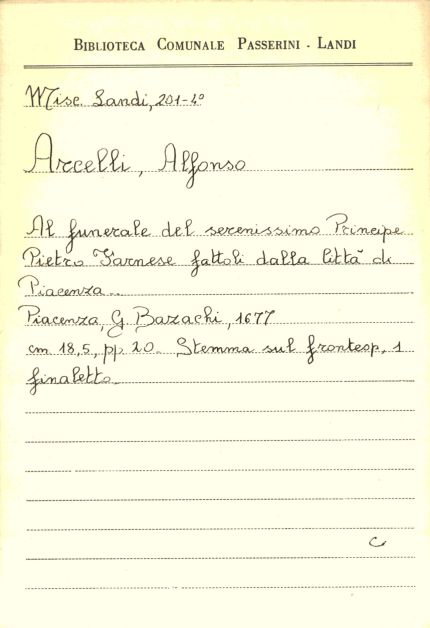 BIBLIOTECA COMUNALE PASSERINI - LANDI
Misc. Landi, 201-4°
Arcelli, Alfonso
Al funerale del serenissimo Principe
Pietro Farnese fattoli dalla Città di
Piacenza..
Piacenza, G. Bazachi, 1677
cm 18,5, pp. 20. Stemma sul frontesp. 1
finaletto.